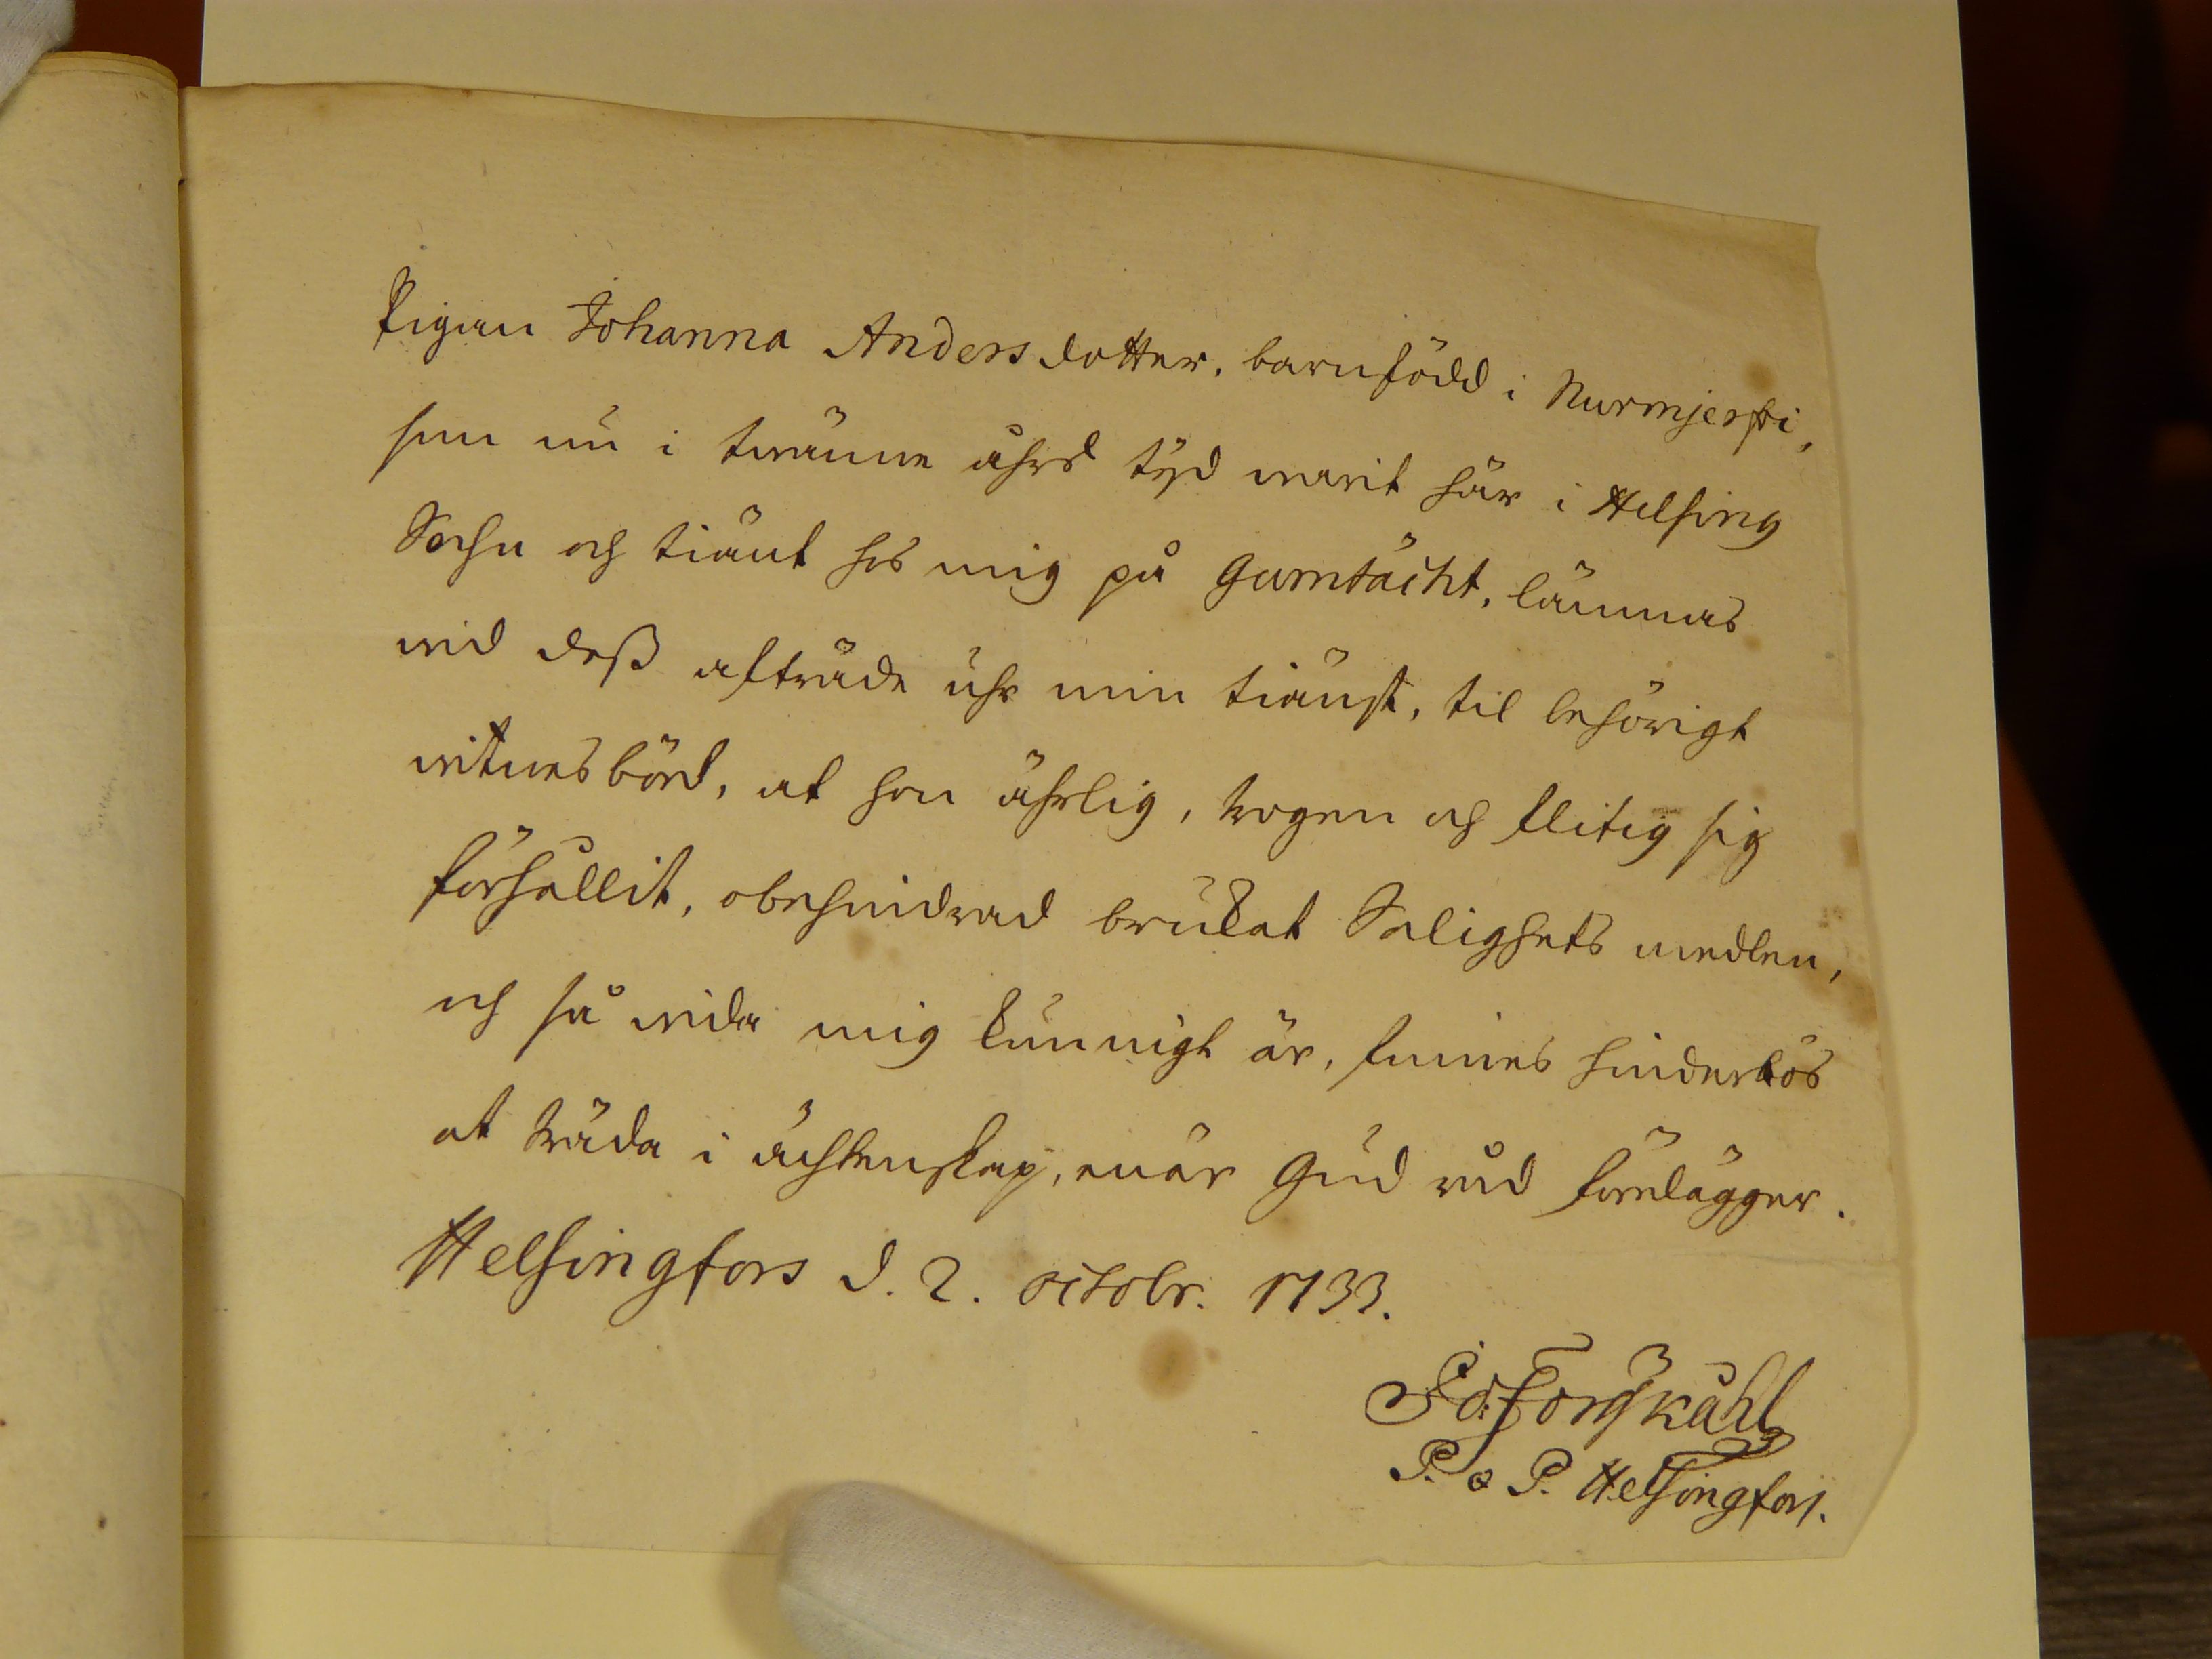 Pigan Johanna Anders dotter, barnfödd i Nurmjerfwi,
som nu i twänne åhrs tijd warit här i Helsing
Sochn och tiänt hos mig på Gumtächt, lämnas
wid dess afträde uhr min tiänst, til behörigt
witnesbörd, at hon ährlig, trogen och flitig sig
förhållit, obehindrad brukat Salighets medlen,
och så wida mig kunnigt är, finnes hinderlös
at träda i ächtenskap, enär Gud råd förelägger.
Helsingfors d. 2. octobr. 1733.
Joh: Forskåhl
P. & P. Helsingfors.